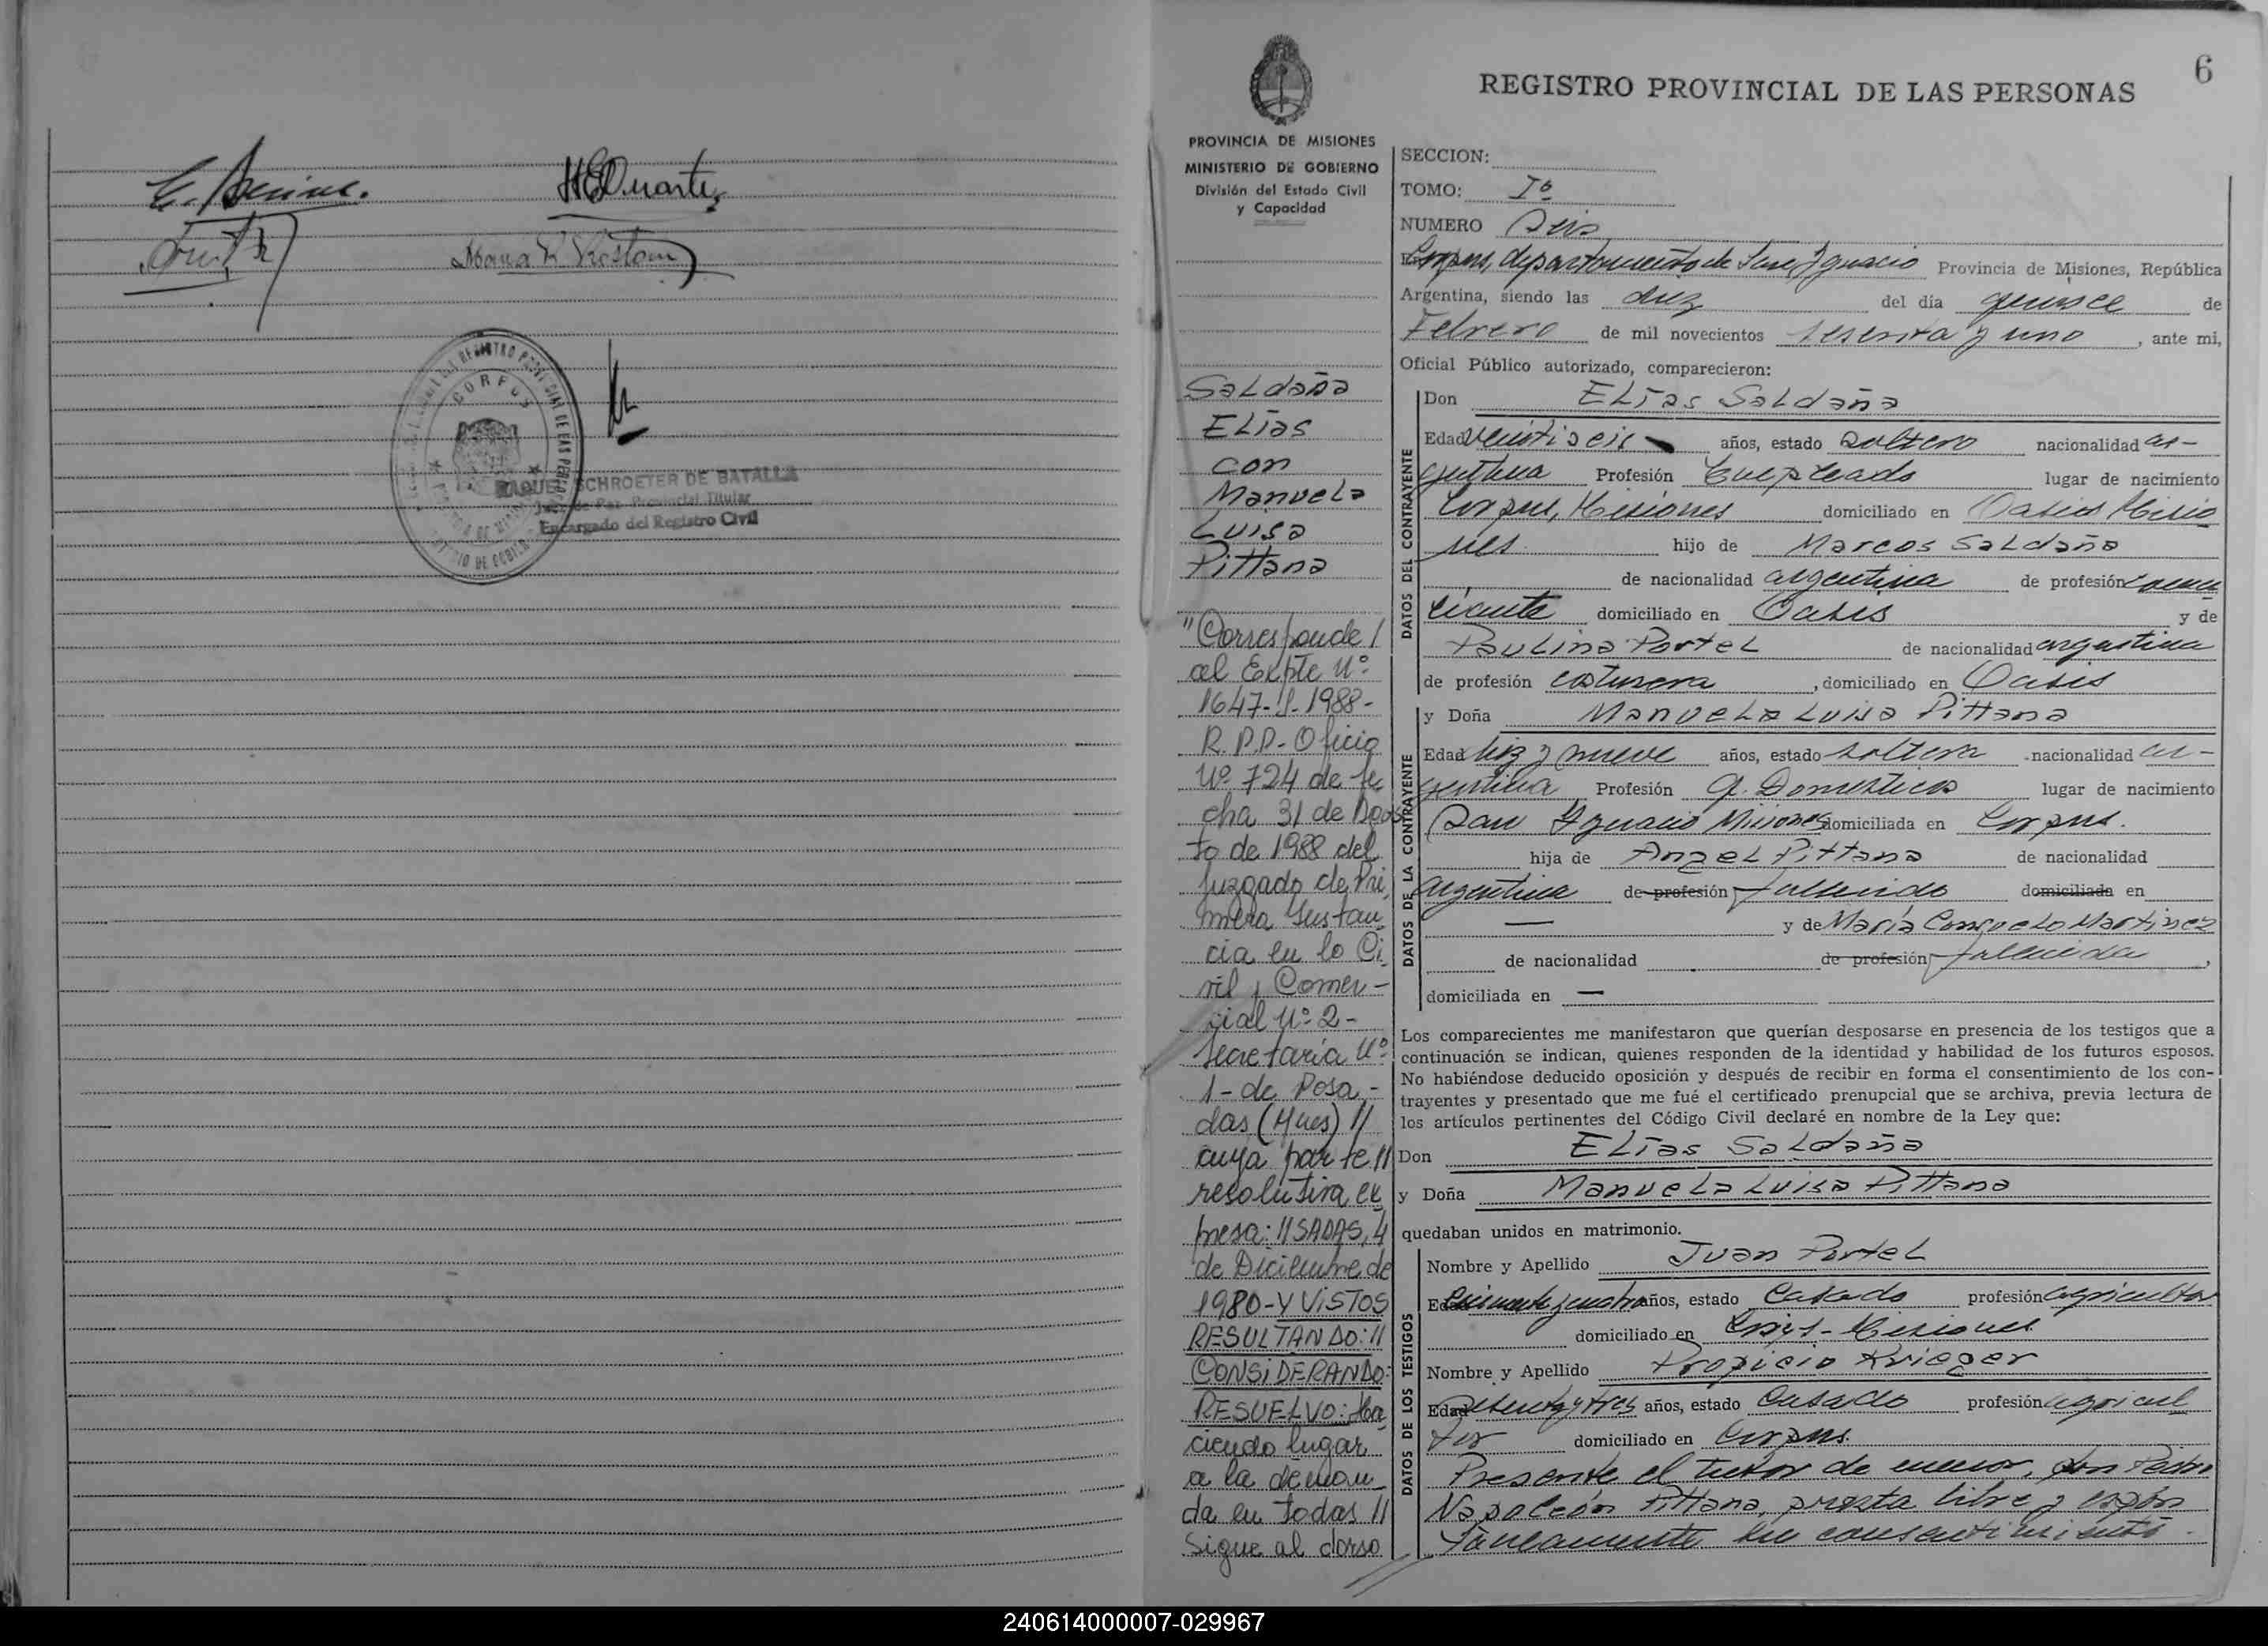 HGDuarte
REGISTRO PROVINCIAL DE LAS PERSONAS
CORPUS
RAQUEL SCHROETER DE BATALLA
Juez de Paz Provincial Titular
Encargado del Registro Civil
6
REGISTRO PROVINCIAL DE LAS PERSONAS
PROVINCIA DE MISIONES
MINISTERIO DE GOBIERNO
División del Estado Civil
y Capacidad
Saldaña
Elías
con
Manuela
Luisa
Pittana
"Corresponde/
al Expte Nº
1647-S-1988-
R.P.P-Oficio
Nº 724 de fe
cha 31 de Agos
to de 1988 del
Juzgado de Pri
mera Instan
cia en lo Ci
vil y Comer-
cial Nº 2-
Secretaría Nº
1- de Posa-
das (Mnes) //
cuya parte //
resolutiva ex
presa: //SADAS, 4
de Diciembre de
1980-Y VISTOS
RESULTANDO: //
CONSIDERANDO:
RESUELVO: Ha
ciendo lugar
a la deman
da en todas //
Sigue al dorso
SECCION:
TOMO: Iº
NUMERO Seis
Corpus, departamento de San Ignacio Provincia de Misiones, República
Argentina, siendo las diez del día quince de
Febrero de mil novecientos sesenta y uno, ante mi,
Oficial Público autorizado, comparecieron:
DATOS DEL CONTRAYENTE
Don Elías Saldaña
Edad veintiseis años, estado soltero nacionalidad ar-
gentina Profesión Empleado lugar de nacimiento
Corpus, Misiones domiciliado en Oasis Misio
nes hijo de Marcos Saldaña
de nacionalidad argentina de profesión comer
ciante domiciliado en Oasis y de
Paulina Portel de nacionalidad argentina
de profesión costurera, domiciliado en Oasis
DATOS DE LA CONTRAYENTE
y Doña Manuela Luisa Pittana
Edad diez y nueve años, estado soltera nacionalidad ar-
gentina Profesión Q. Domésticos lugar de nacimiento
San Ignacio Misiones domiciliada en Corpus.
hija de Angel Pittana de nacionalidad
argentina de profesión fallecido domiciliada en
— y de María Consuelo Martinez
de nacionalidad de profesión fallecida,
domiciliada en —
Los comparecientes me manifestaron que querían desposarse en presencia de los testigos que a
continuación se indican, quienes responden de la identidad y habilidad de los futuros esposos.
No habiéndose deducido oposición y después de recibir en forma el consentimiento de los con-
trayentes y presentado que me fué el certificado prenupcial que se archiva, previa lectura de
los artículos pertinentes del Código Civil declaré en nombre de la Ley que:
Don Elías Saldaña
y Doña Manuela Luisa Pittana
quedaban unidos en matrimonio.
DATOS DE LOS TESTIGOS
Nombre y Apellido Juan Portel
Edad cincuenta y cuatro años, estado Casado profesión agricultor
domiciliado en Corpus-Misiones
Nombre y Apellido Propicio Krieger
Edad setenta y tres años, estado Casado profesión agricul
tor domiciliado en Corpus.
Presente el tutor de menor, don Pedro
Napoleón Pittana, presta libre y espon
táneamente su consentimiento.
240614000007-029967